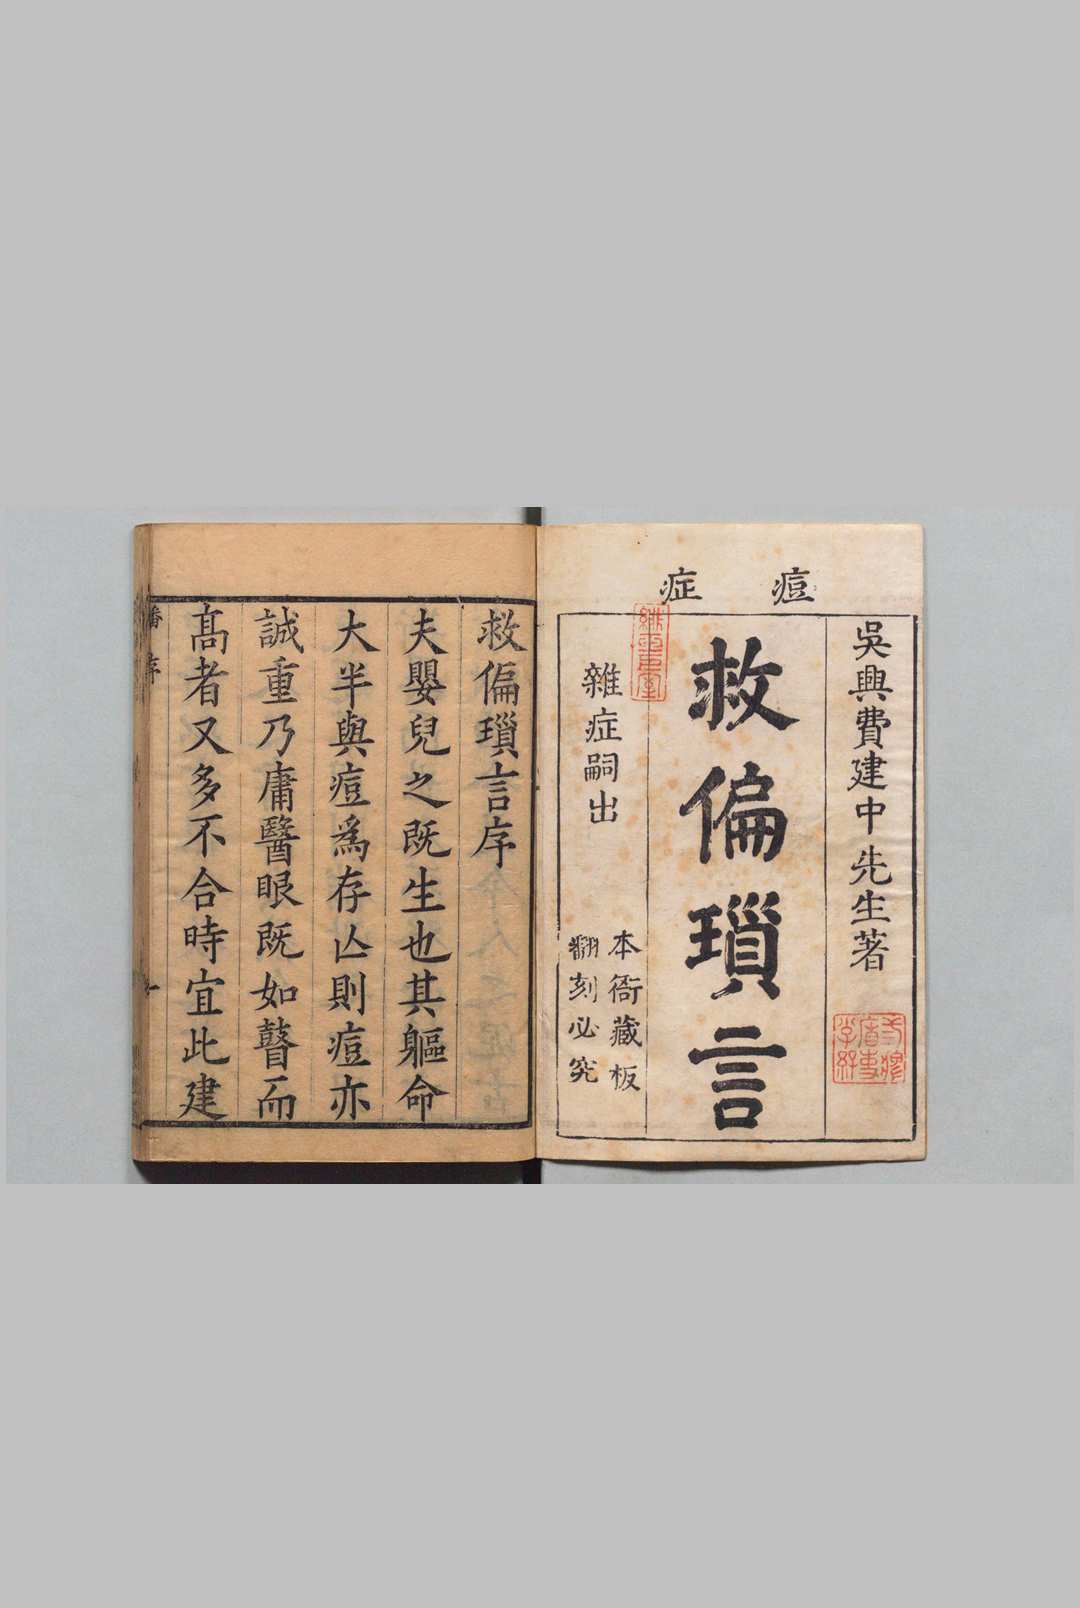 痘症
吳興費建中先生著
救偏瑣言
雜症嗣出
本衙藏板
翻刻必究
救偏瑣言序
夫嬰兒之既生也其軀命
大半與痘爲存亾則痘亦
誠重乃庸醫眼既如瞽而
髙者又多不合時宜此建
序